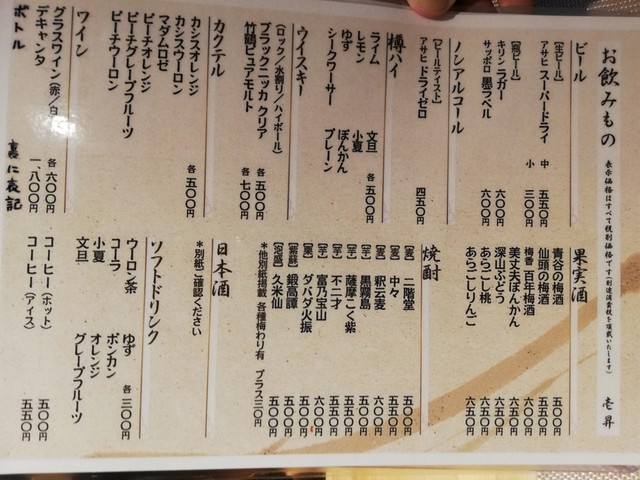 お飲みもの 表示価格はすべて税別価格です(別途消費税を頂戴いたします) 壱昇
ビール
[生ビール]
アサヒ スーパードライ 中 五五〇円
小 三〇〇円
[瓶ビール]
キリン ラガー 六〇〇円
サッポロ 黒ラベル 六〇〇円
ノンアルコール
[ビールテイスト]
アサヒ ドライゼロ 四五〇円
樽ハイ
ライム 文旦
レモン 小夏
ゆず ぽんかん
シークワーサー プレーン
各 五〇〇円
ウイスキー
(ロック/水割り/ハイボール)
ブラックニッカ クリア 各 五〇〇円
竹鶴ピュアモルト 各 七〇〇円
カクテル
カシスオレンジ
カシスウーロン
マダムロゼ
ピーチオレンジ
ピーチグレープフルーツ
ピーチウーロン
各 五〇〇円
ワイン
グラスワイン(赤/白) 各 六〇〇円
デキャンタ 一、八〇〇円
ボトル 裏に表記
果実酒
青谷の梅酒 五〇〇円
仙頭の梅酒 五五〇円
梅香 百年梅酒 五〇〇円
美丈夫ぽんかん 六〇〇円
深山ぶどう 六五〇円
あらごし桃 六五〇円
あらごしりんご 六五〇円
焼酎
[麦] 二階堂 五五〇円
[麦] 中々 五五〇円
[麦] 釈云麦 六〇〇円
[芋] 黒霧島 五〇〇円
[芋] 薩摩こく紫 五五〇円
[芋] 不二才 五五〇円
[芋] 富乃宝山 六〇〇円
[栗] ダバダ火振 五五〇円
[紫蘇] 鍛高譚 五〇〇円
[泡盛] 久米仙 五〇〇円
*他別紙掲載 各種梅わり有 プラス三〇円
日本酒
*別紙ご確認ください
ソフトドリンク
ウーロン茶 ゆず
コーラ ポンカン
小夏 オレンジ
文旦 グレープフルーツ
各 三〇〇円
コーヒー(ホット) 五〇〇円
コーヒー(アイス) 五五〇円